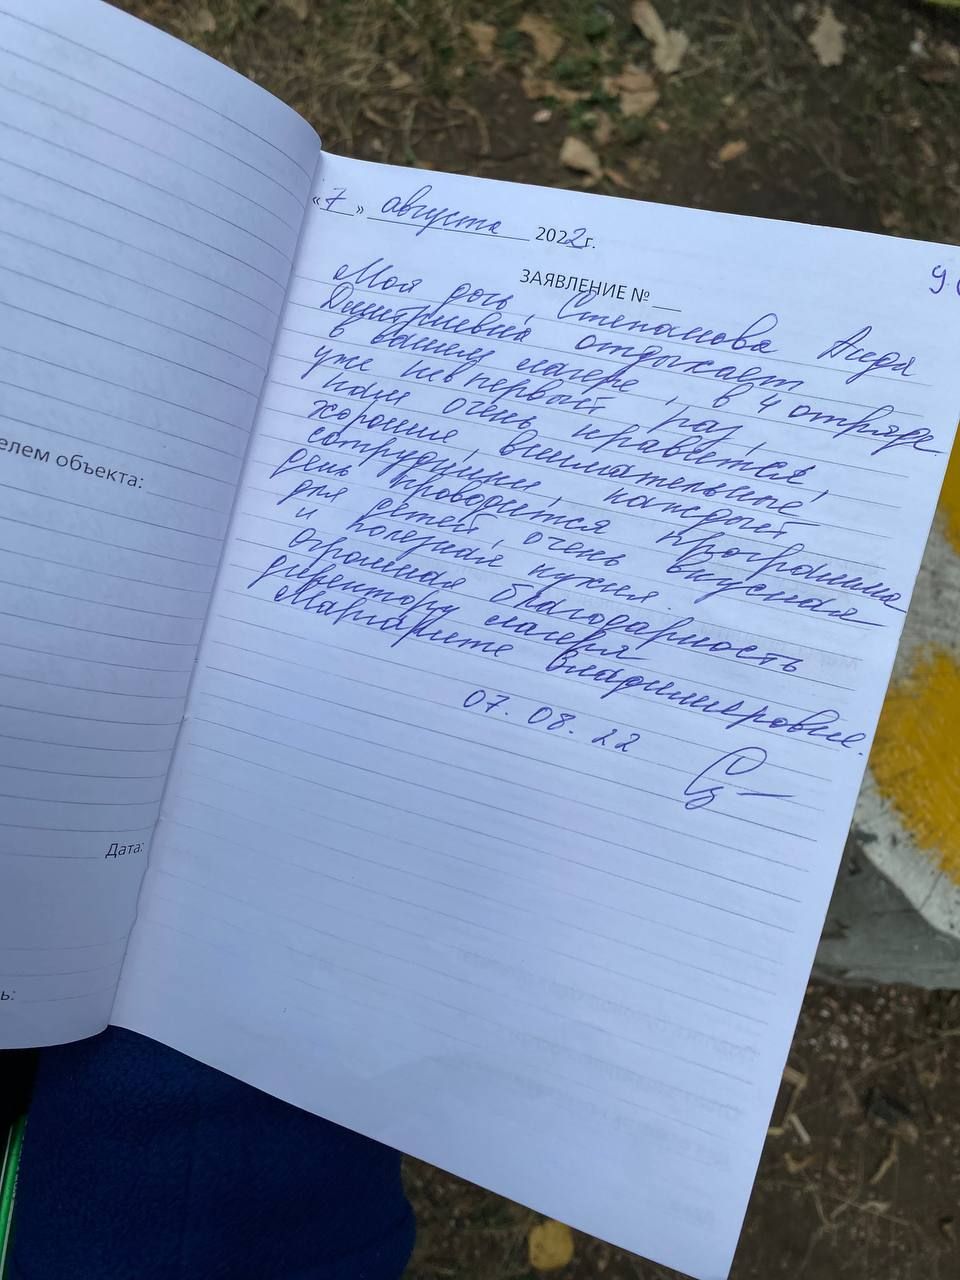 елем объекта:
Дата:
ь:
«7» августа 2022г.
ЗАЯВЛЕНИЕ №
Моя дочь, Степанова Аида
Дмитриевна отдыхает
в вашем лагере, в 4 отряде
уже не впервый раз,
нам очень нравится,
хорошие, внимательные
сотрудники, каждый
день проводится программа
для детей, очень вкусная
и полезная кухня.
Огромная благодарность
директору лагеря
Маргарите Владимировне.
07.08.22